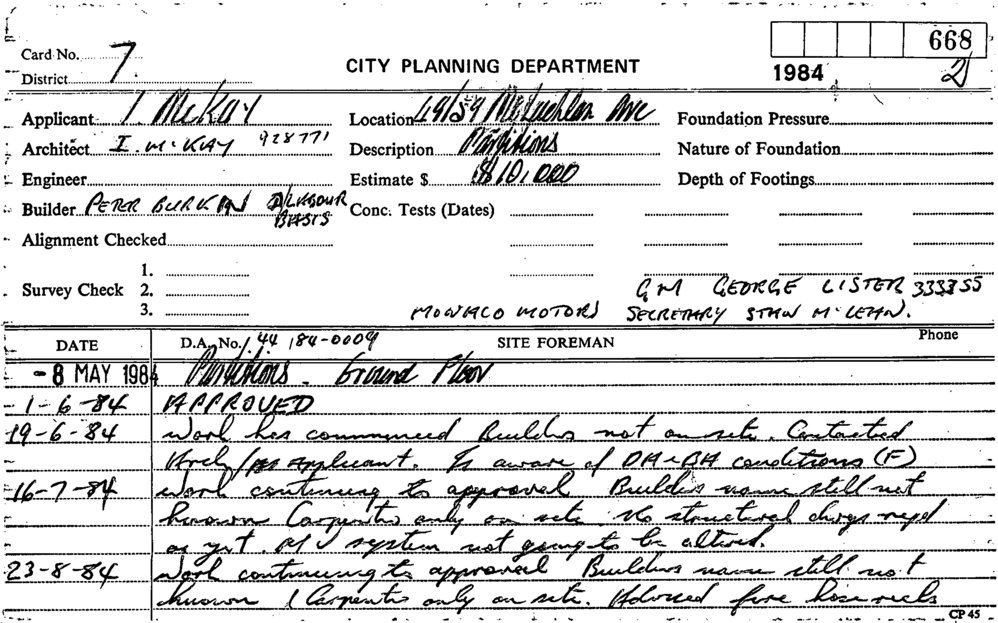 Card No. 7
District
CITY PLANNING DEPARTMENT
668
1984 2
Applicant I McKay
Location 49/59 McLachlan Ave
Foundation Pressure
Architect I. McKAY 928771
Description Partitions
Nature of Foundation
Engineer
Estimate $ $10,000
Depth of Footings
Builder PETER BURKIN LABOUR BASIS
Conc. Tests (Dates)
Alignment Checked
1.
Survey Check 2.
3.
GM GEORGE LISTER 333355
MONACO MOTORS SECRETARY McLEAN.
DATE D.A. No. 44 184-0009 SITE FOREMAN Phone
- 8 MAY 1984 Partitions - Ground Floor
1-6-84 APPROVED
19-6-84 Work has commenced Builders not on site. Contacted
Arch/ Applicant. Is aware of DA & BA conditions (F)
16-7-84 Work continuing to approval Builders name still not
known Carpenters only on site. No structural reqd
as yet. system not going to be altered.
23-8-84 Work continuing to approval Builders name still not
known 1 Carpenter only on site. Advised fire hose reels
CP 45